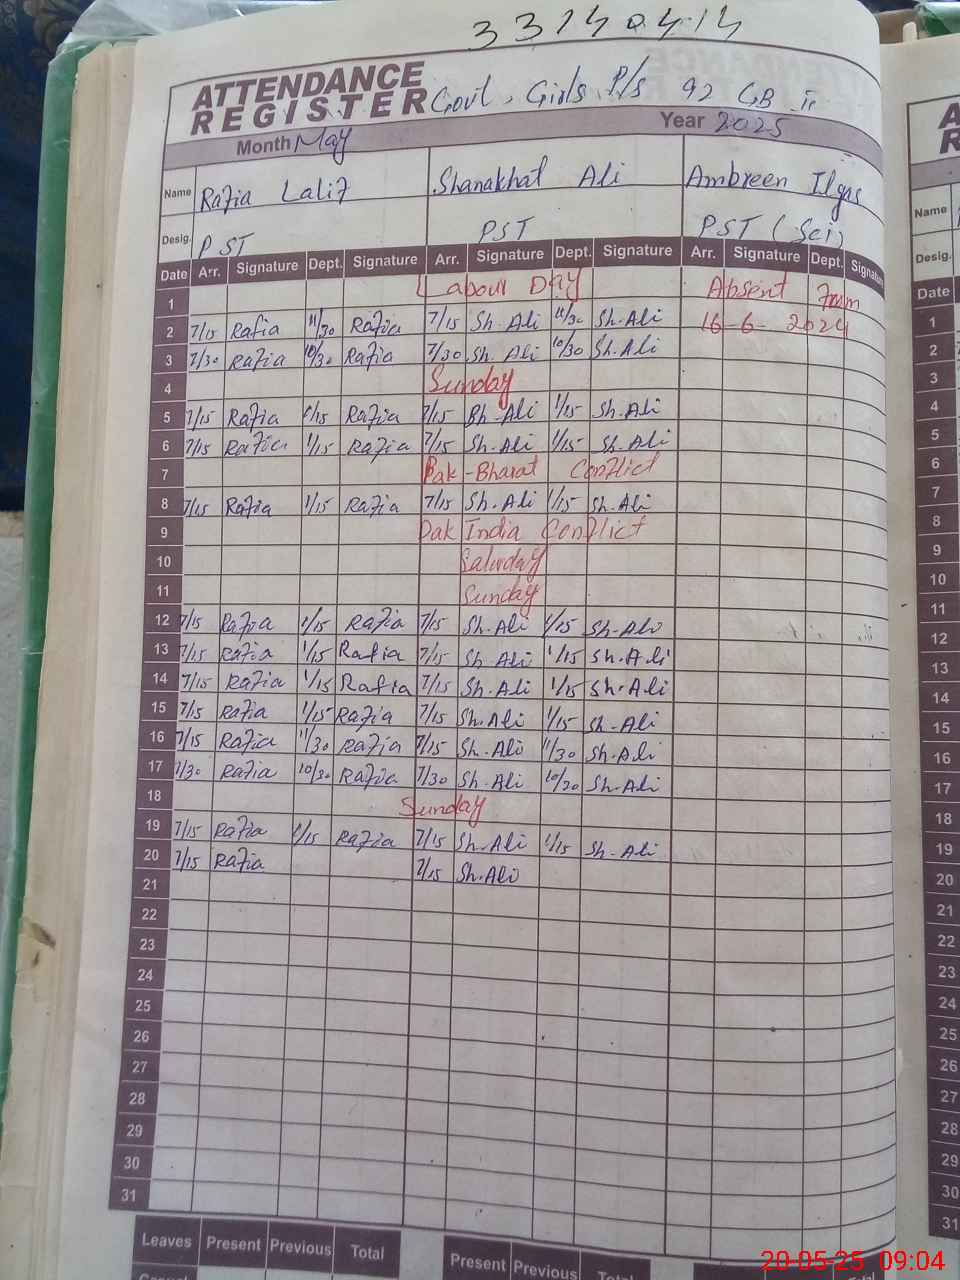 33140414
ATTENDANCE
REGISTER Govt. Girls P/S 92 GB II
Month May Year 2025
Name Rafia Latif Shanakhat Ali Ambreen Ilyas
Desig. PST PST PST (Sci)
Date Arr. Signature Dept. Signature Arr. Signature Dept. Signature Arr. Signature Dept. Signature
1 Labour Day Absent From
2 7/15 Rafia 11/30 Rafia 7/15 Sh.Ali 11/30 Sh.Ali 16-6-2024
3 7/30 Rafia 10/30 Rafia 7/30 Sh.Ali 10/30 Sh.Ali
4 Sunday
5 7/15 Rafia 1/15 Rafia 7/15 Sh-Ali 1/15 Sh-Ali
6 7/15 Rafia 1/15 Rafia 7/15 Sh-Ali 1/15 Sh-Ali
7 Pak-Bharat Conflict
8 7/15 Rafia 1/15 Rafia 7/15 Sh.Ali 1/15 Sh.Ali
9 Pak India Conflict
10 Saturday
11 Sunday
12 7/15 Rafia 1/15 Rafia 7/15 Sh.Ali 1/15 Sh.Ali
13 7/15 Rafia 1/15 Rafia 7/15 Sh.Ali 1/15 Sh.Ali
14 7/15 Rafia 1/15 Rafia 7/15 Sh.Ali 1/15 Sh.Ali
15 7/15 Rafia 1/15 Rafia 7/15 Sh.Ali 1/15 Sh.Ali
16 7/15 Rafia 11/30 Rafia 7/15 Sh.Ali 11/30 Sh.Ali
17 7/30 Rafia 10/30 Rafia 7/30 Sh.Ali 10/20 Sh.Ali
18 Sunday
19 7/15 Rafia 1/15 Rafia 7/15 Sh.Ali 1/15 Sh.Ali
20 7/15 Rafia 7/15 Sh.Ali
21
22
23
24
25
26
27
28
29
30
31
Leaves Present Previous Total Present Previous Total
Name
Desig.
Date
1
2
3
4
5
6
7
8
9
10
11
12
13
14
15
16
17
18
19
20
21
22
23
24
25
26
27
28
29
30
31
20-05-25 09:04